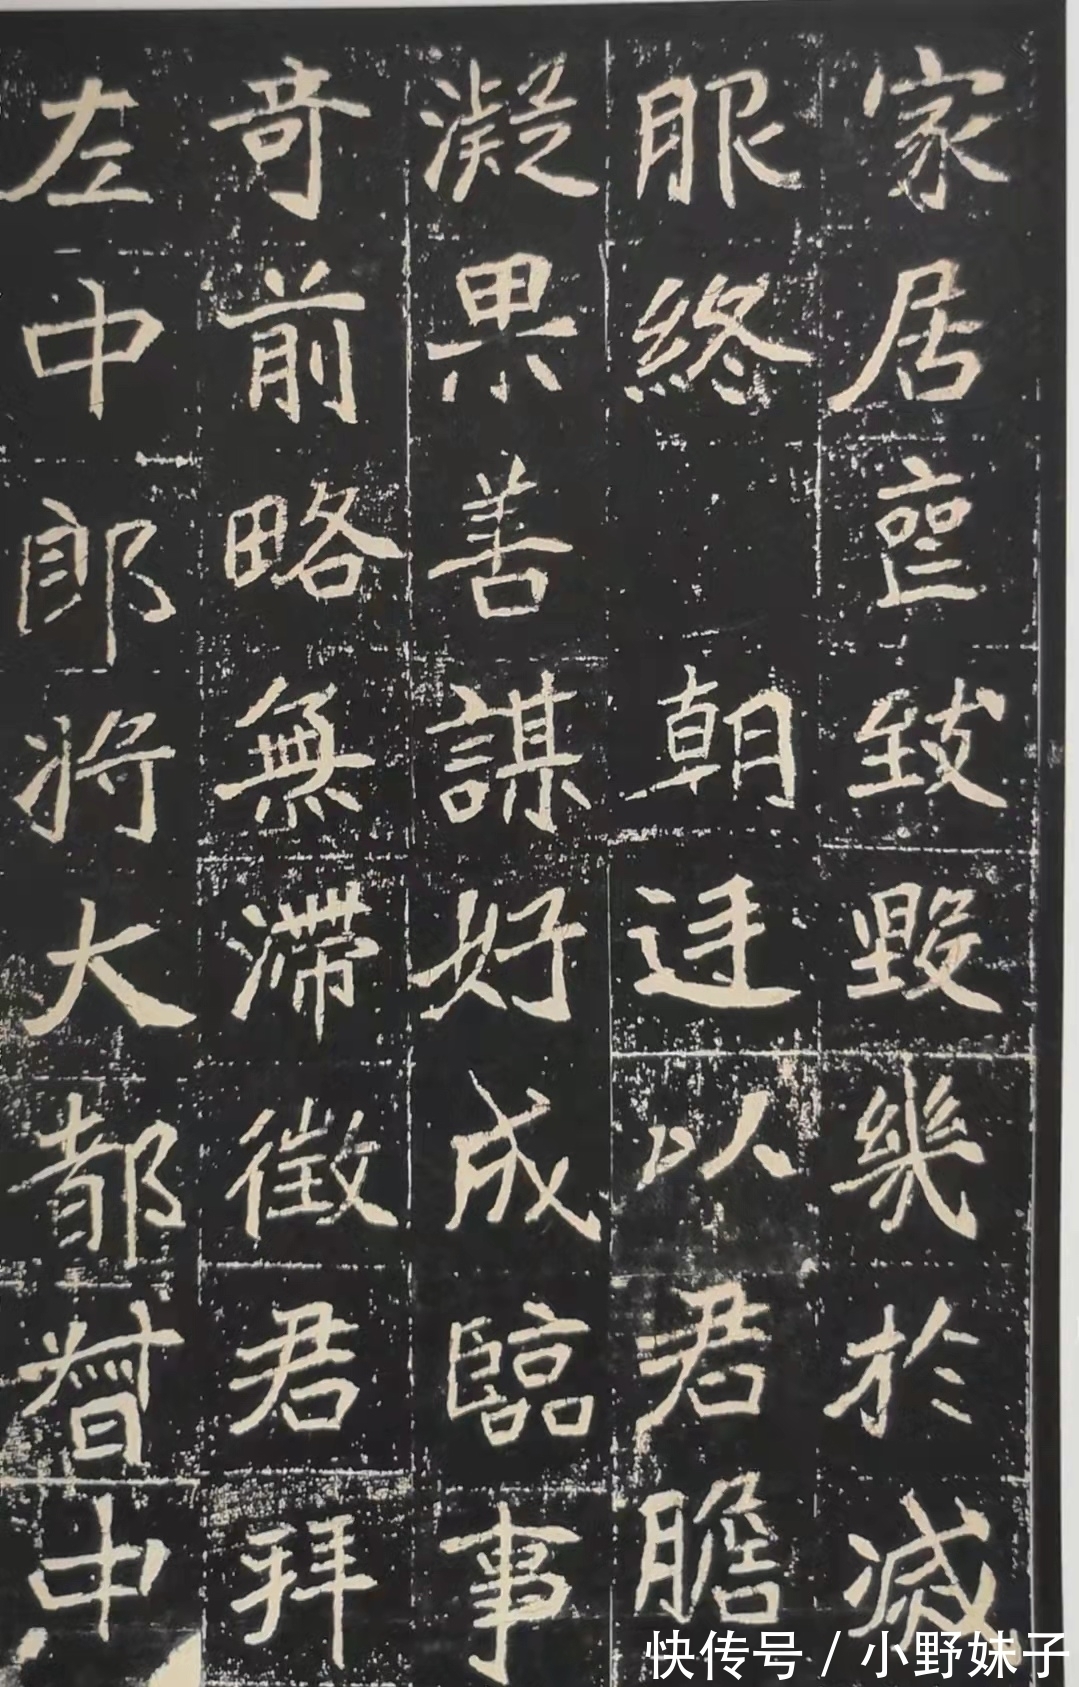 家居喪致毀幾於滅
服終　朝迋以君膽
凝果善謀好成臨事
奇前略無滯徵君拜
左中郎將大都督中
快传号／小野妹子